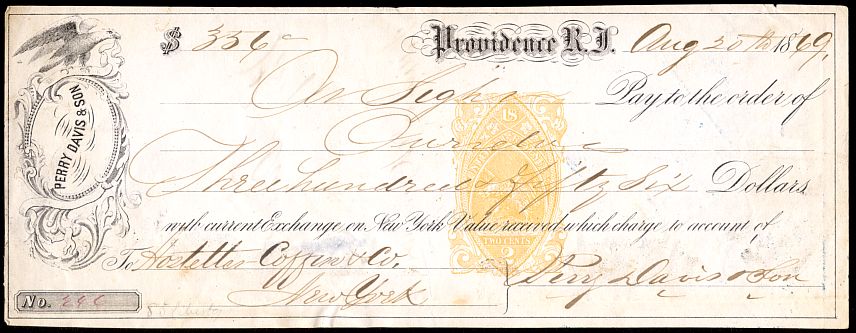 PERRY DAVIS & SON
$ 356 Providence R.I. Aug 20th 1869,
At Sight Pay to the order of
Ourselves
Three hundred & fifty Six Dollars
with current Exchange on New York Value received, which charge to account of
To Hostetter Coffin & Co.
New York
Perry Davis & Son
No.
18
TWO CENTS